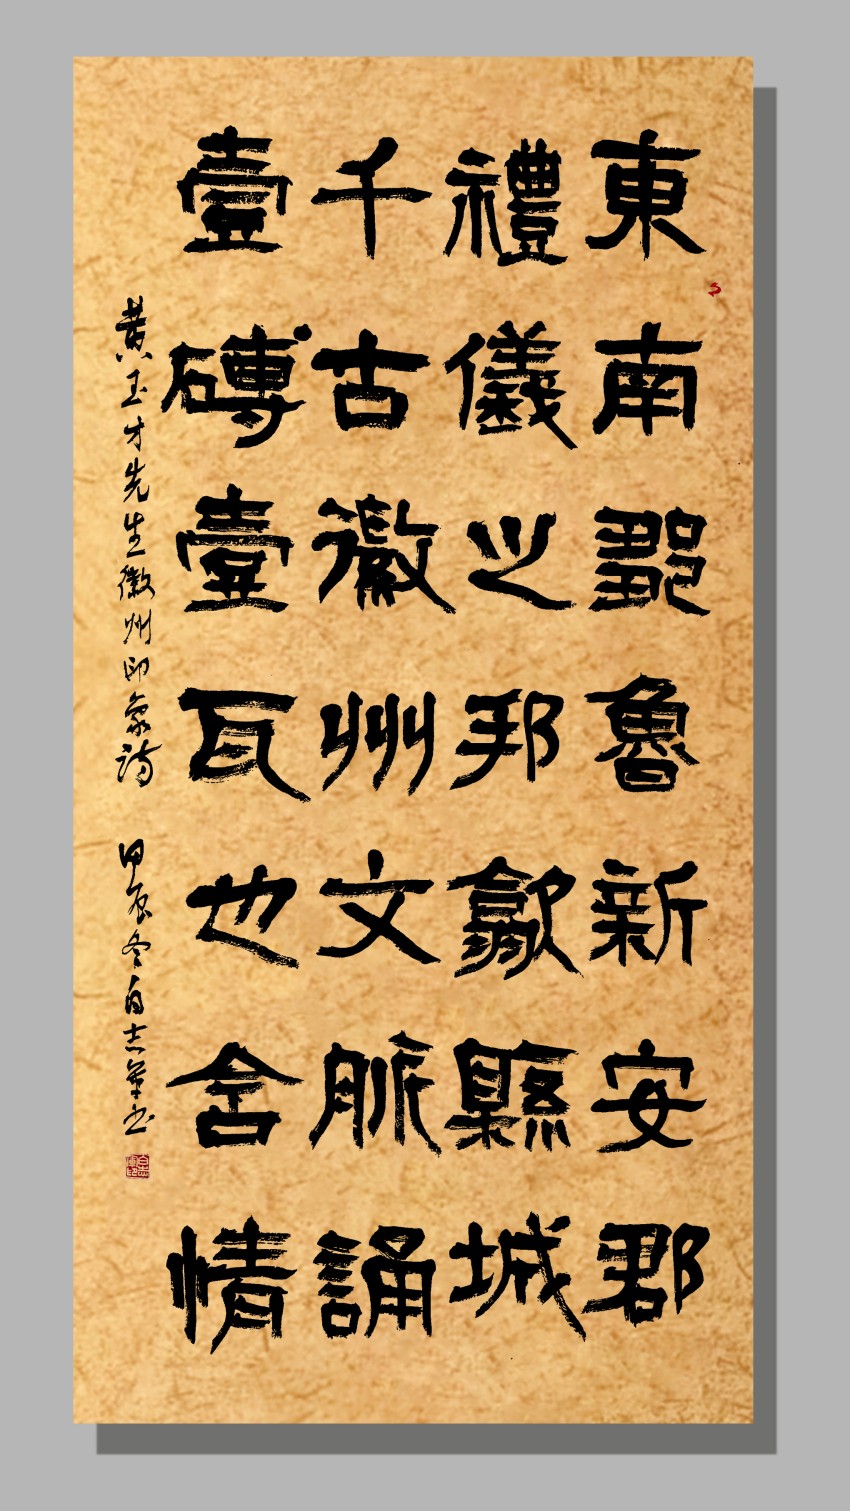 東南鄒魯新安郡
禮儀之邦歙縣城
千古徽州文脈誦
壹磚壹瓦也含情
黄玉才先生徽州印象詩
甲辰冬白志軍书